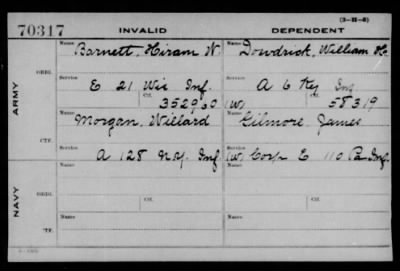 (3-II-5)
70317 INVALID DEPENDENT
Name Barnett, Hiram N. Name Dowdrick, William H.
ORIG.
Service E 21 Wis Inf. Service A 6 Ky Inf
Ctf. 352930 (W) Ctf. 58319
ARMY
Name Morgan, Willard Name Gilmore, James
CTF.
Service A 128 N.Y. Inf. Service (W) Corp E 110 Pa Inf.
Name Name
ORIG.
Ctf. Ctf.
NAVY
Name Name
CTF.